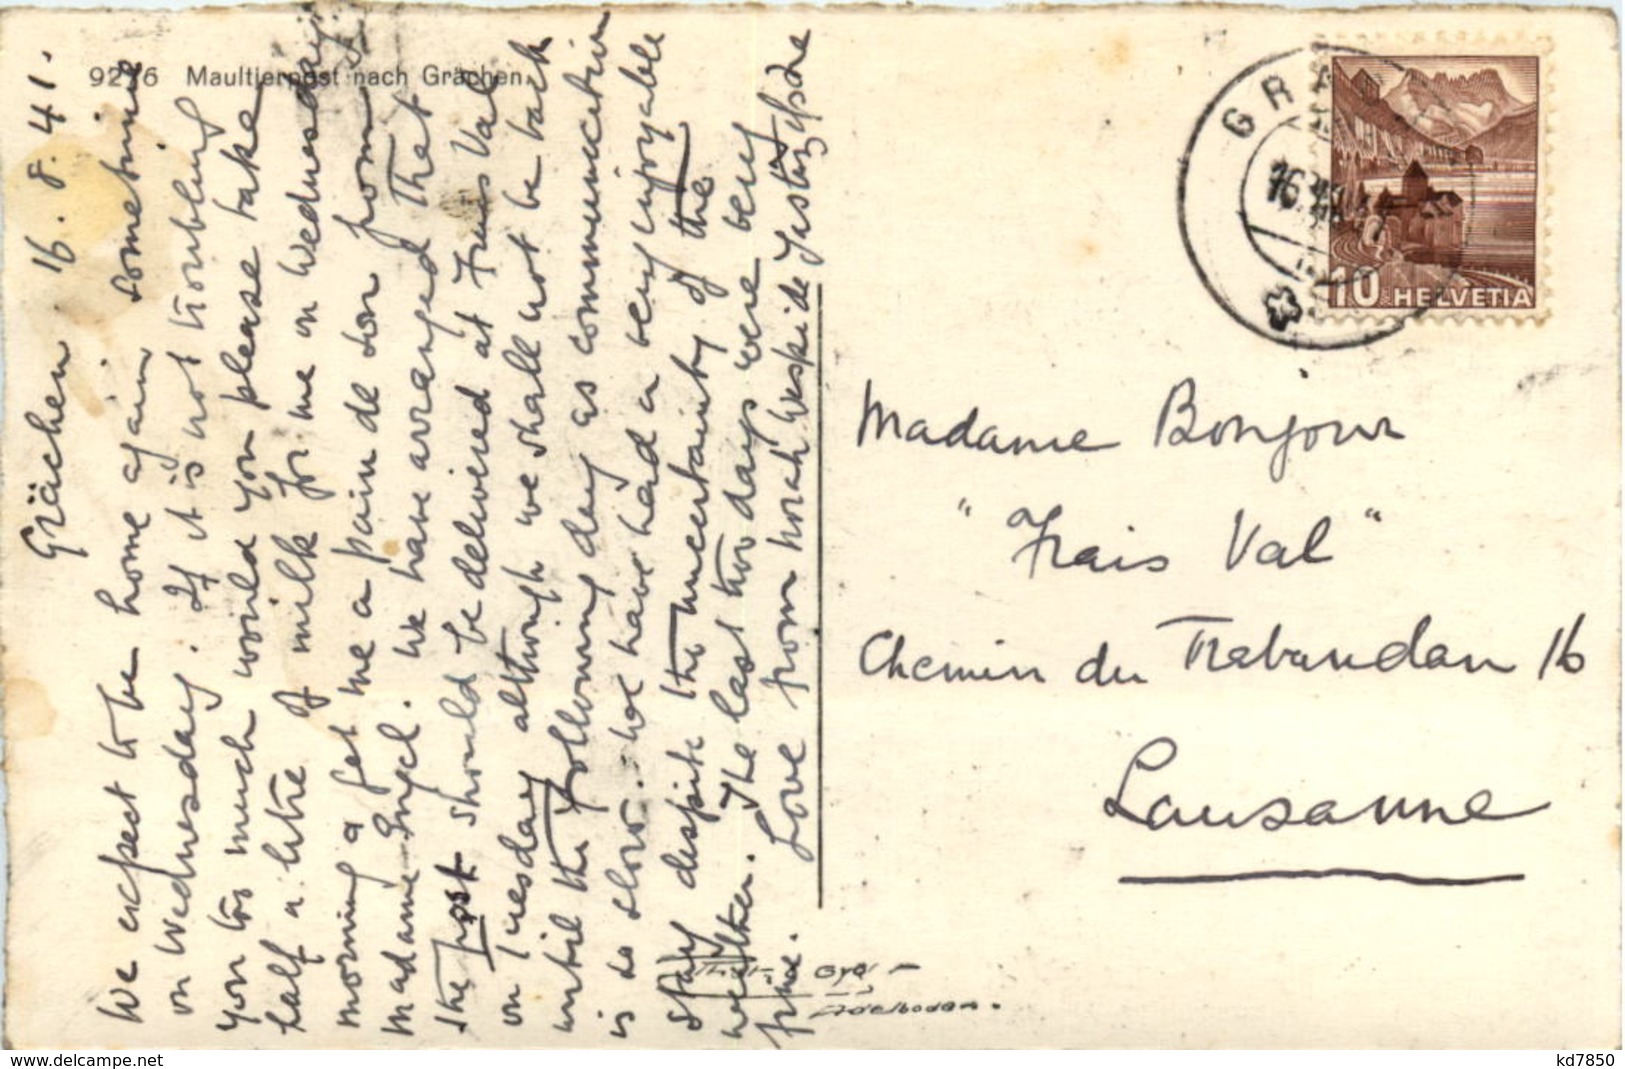 9276 Maultierpost nach Grächen.
Grächen 16. 8. 41.
We expect to be home again sometime
on Wednesday. If it is not troubling
you too much would you please take
half a litre of milk for me on Wednesday
morning & get me a pain de son from
Madame Engel. We have arranged that
the post should be delivered at Frais Val
on Tuesday although we shall not be back
until the following day as communication
is so slow. We have had a very enjoyable
stay despite the uncertainty of the
weather. The last two days were very
fine. Love from Norah Weski de
GRÄ
16
10 HELVETIA
Madame Bonjour
"Frais Val"
Chemin du Trabandan 16
Lausanne
Gyger
Adelboden.
www.delcampe.net
kd7850